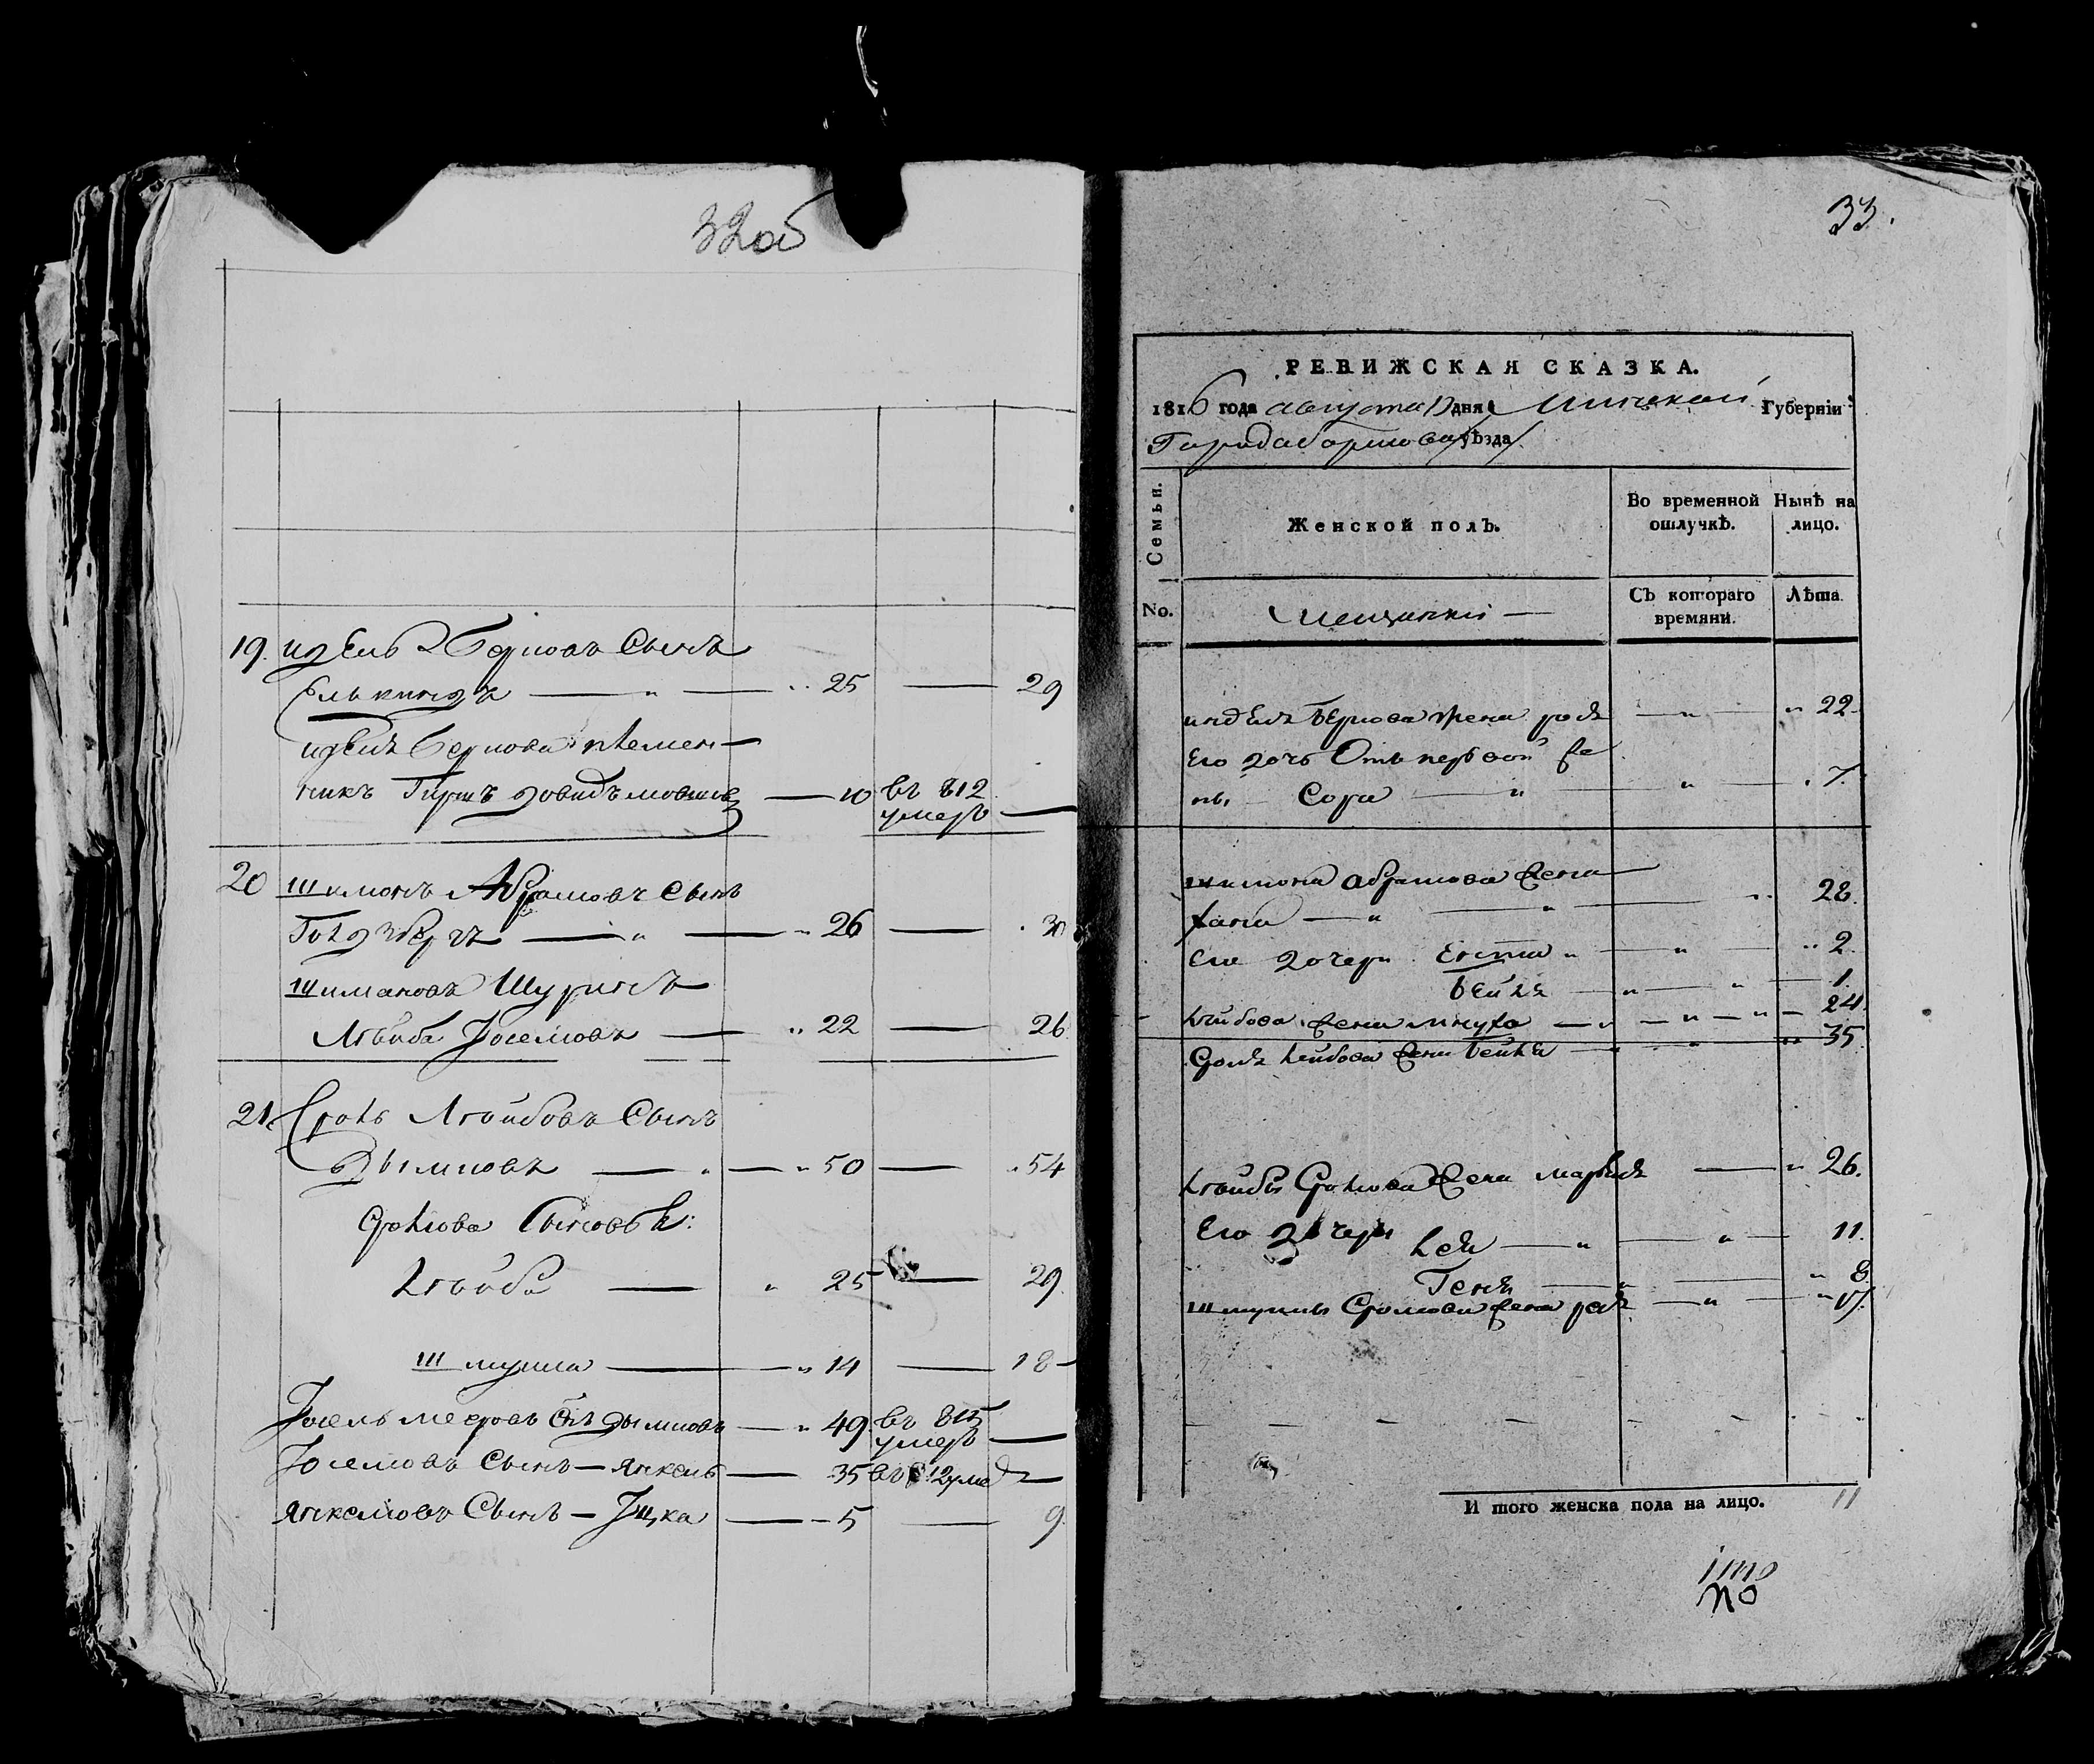 32об
19. Изель Берковъ Сынъ
Элькиндъ — 25 — 29
Изеля Беркова племен-
никъ Гиршъ Довидъ Мовшовъ — 10 въ 812
умеръ —
20 Шимонъ Абрамовъ Сынъ
Голдзбергъ — 26 — 30
Шимановъ Шуринъ
Лейба Іоселіовъ — 22 — 26
21. Сроль Лейбовъ Сынъ
Дымновъ — 50 — 54
Срольова Сыновья:
Лейба — 25 — 29
Шмуила — 14 — 18
Іосель Мееровъ Снъ Дымновъ — 49 въ 815
умеръ —
Іоселіовъ Сынъ — Янкель — 35 въ 812 уме
Янкеліовъ Сынъ — Іцка — 5 — 9
33.
РЕВИЖСКАЯ СКАЗКА.
1816 года августа дня Минской Губерніи
Города Борисова уѣзда
Семьи. Женской полъ. Во временной отлучкѣ. Нынѣ на лицо.
No. Мещинки — Съ котораго времяни. Лѣта.
Беркова жена — 22.
Его дочь Отъ первой же
ны Сора — 7.
Шимона Абрамова жена
Хана — 28.
Его дочери Ента — 2.
Бейля — 1.
Лейбова жена Мнуха — 24.
Сроля Лейбова жена Бейля — 35
Лейбы Срольова жена — 26.
Его дочери Лея — 11.
Геня — 8.
Шмуилы Срольова жена
И того женска пола на лицо. 11